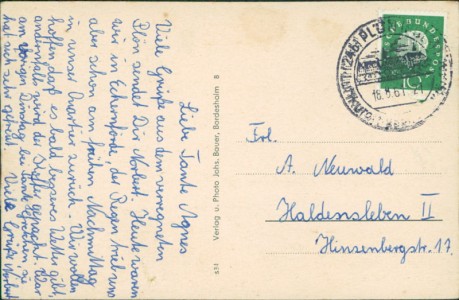 Liebe Tante Agnes
Viele Grüße aus dem verregneten
Plön sendet Dir Norbert. Heute waren
wir in Eckernförde, der Regen trieb uns
aber schon am frühen Nachmittag
in unser Quartier zurück. Wir wollen
hoffen, daß es bald besseres Wetter gibt,
andernfalls wird der
am vorigen Dienstag bei Tante
hat sich sehr gefreut. Viele Grüße Norbert
631 Verlag u. Photo Johs. Bauer, Bordesholm B
(24b) PLÖN
16.8.61-21
10
Frl.
A. Neuwald
Haldensleben II
Hinzenbergstr. 17